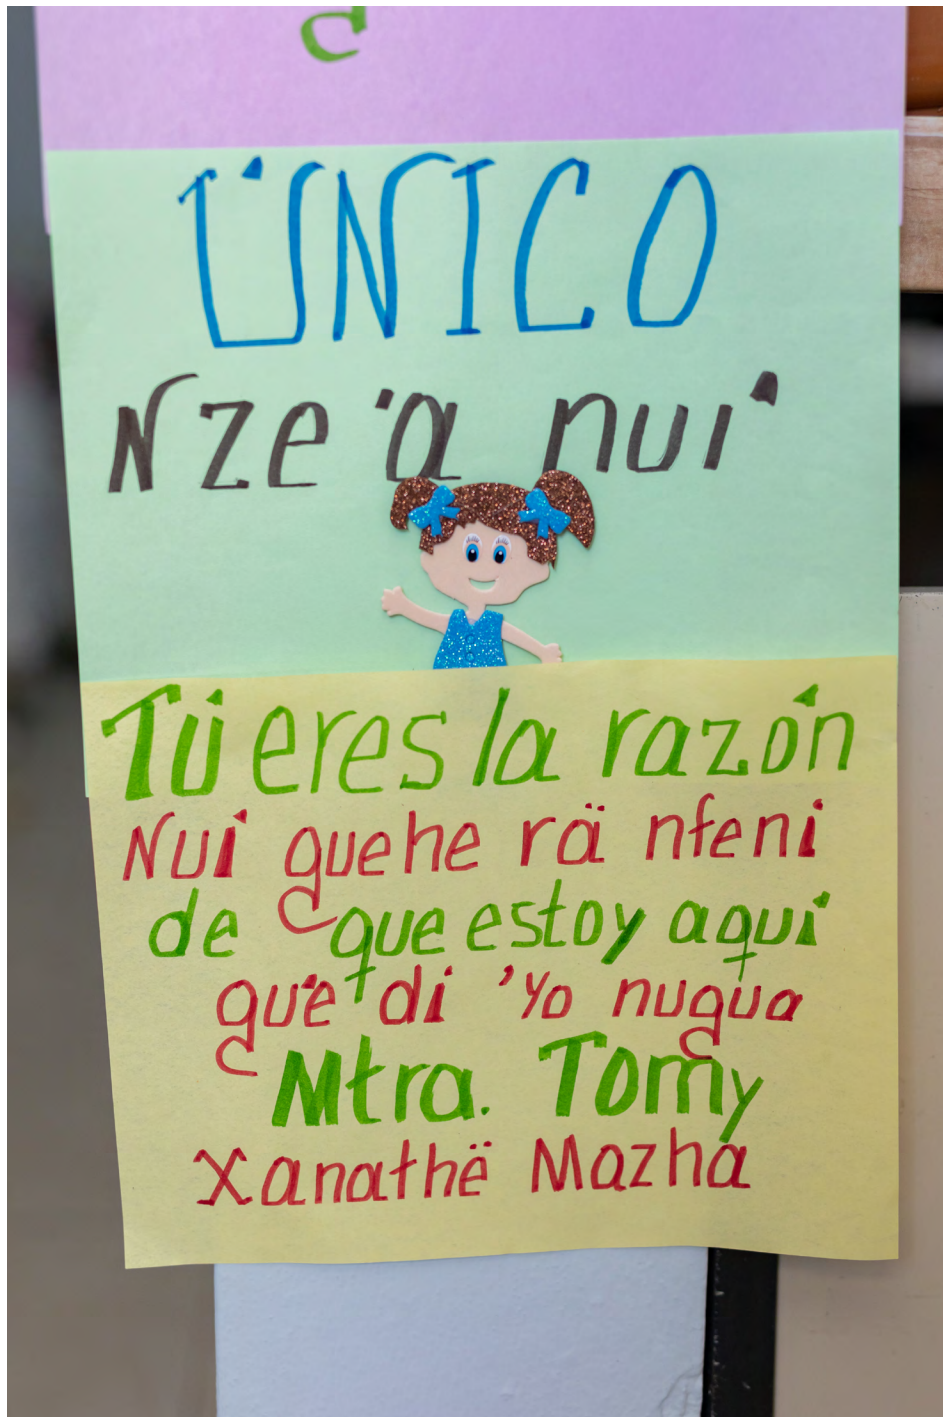 ÚNICO
Nze'a nui'
Tú eres la razón
Nui guehe rä nfeni
de que estoy aquí
gu'e di 'yo nugua
Mtra. Tomy
Xanathë Mazha